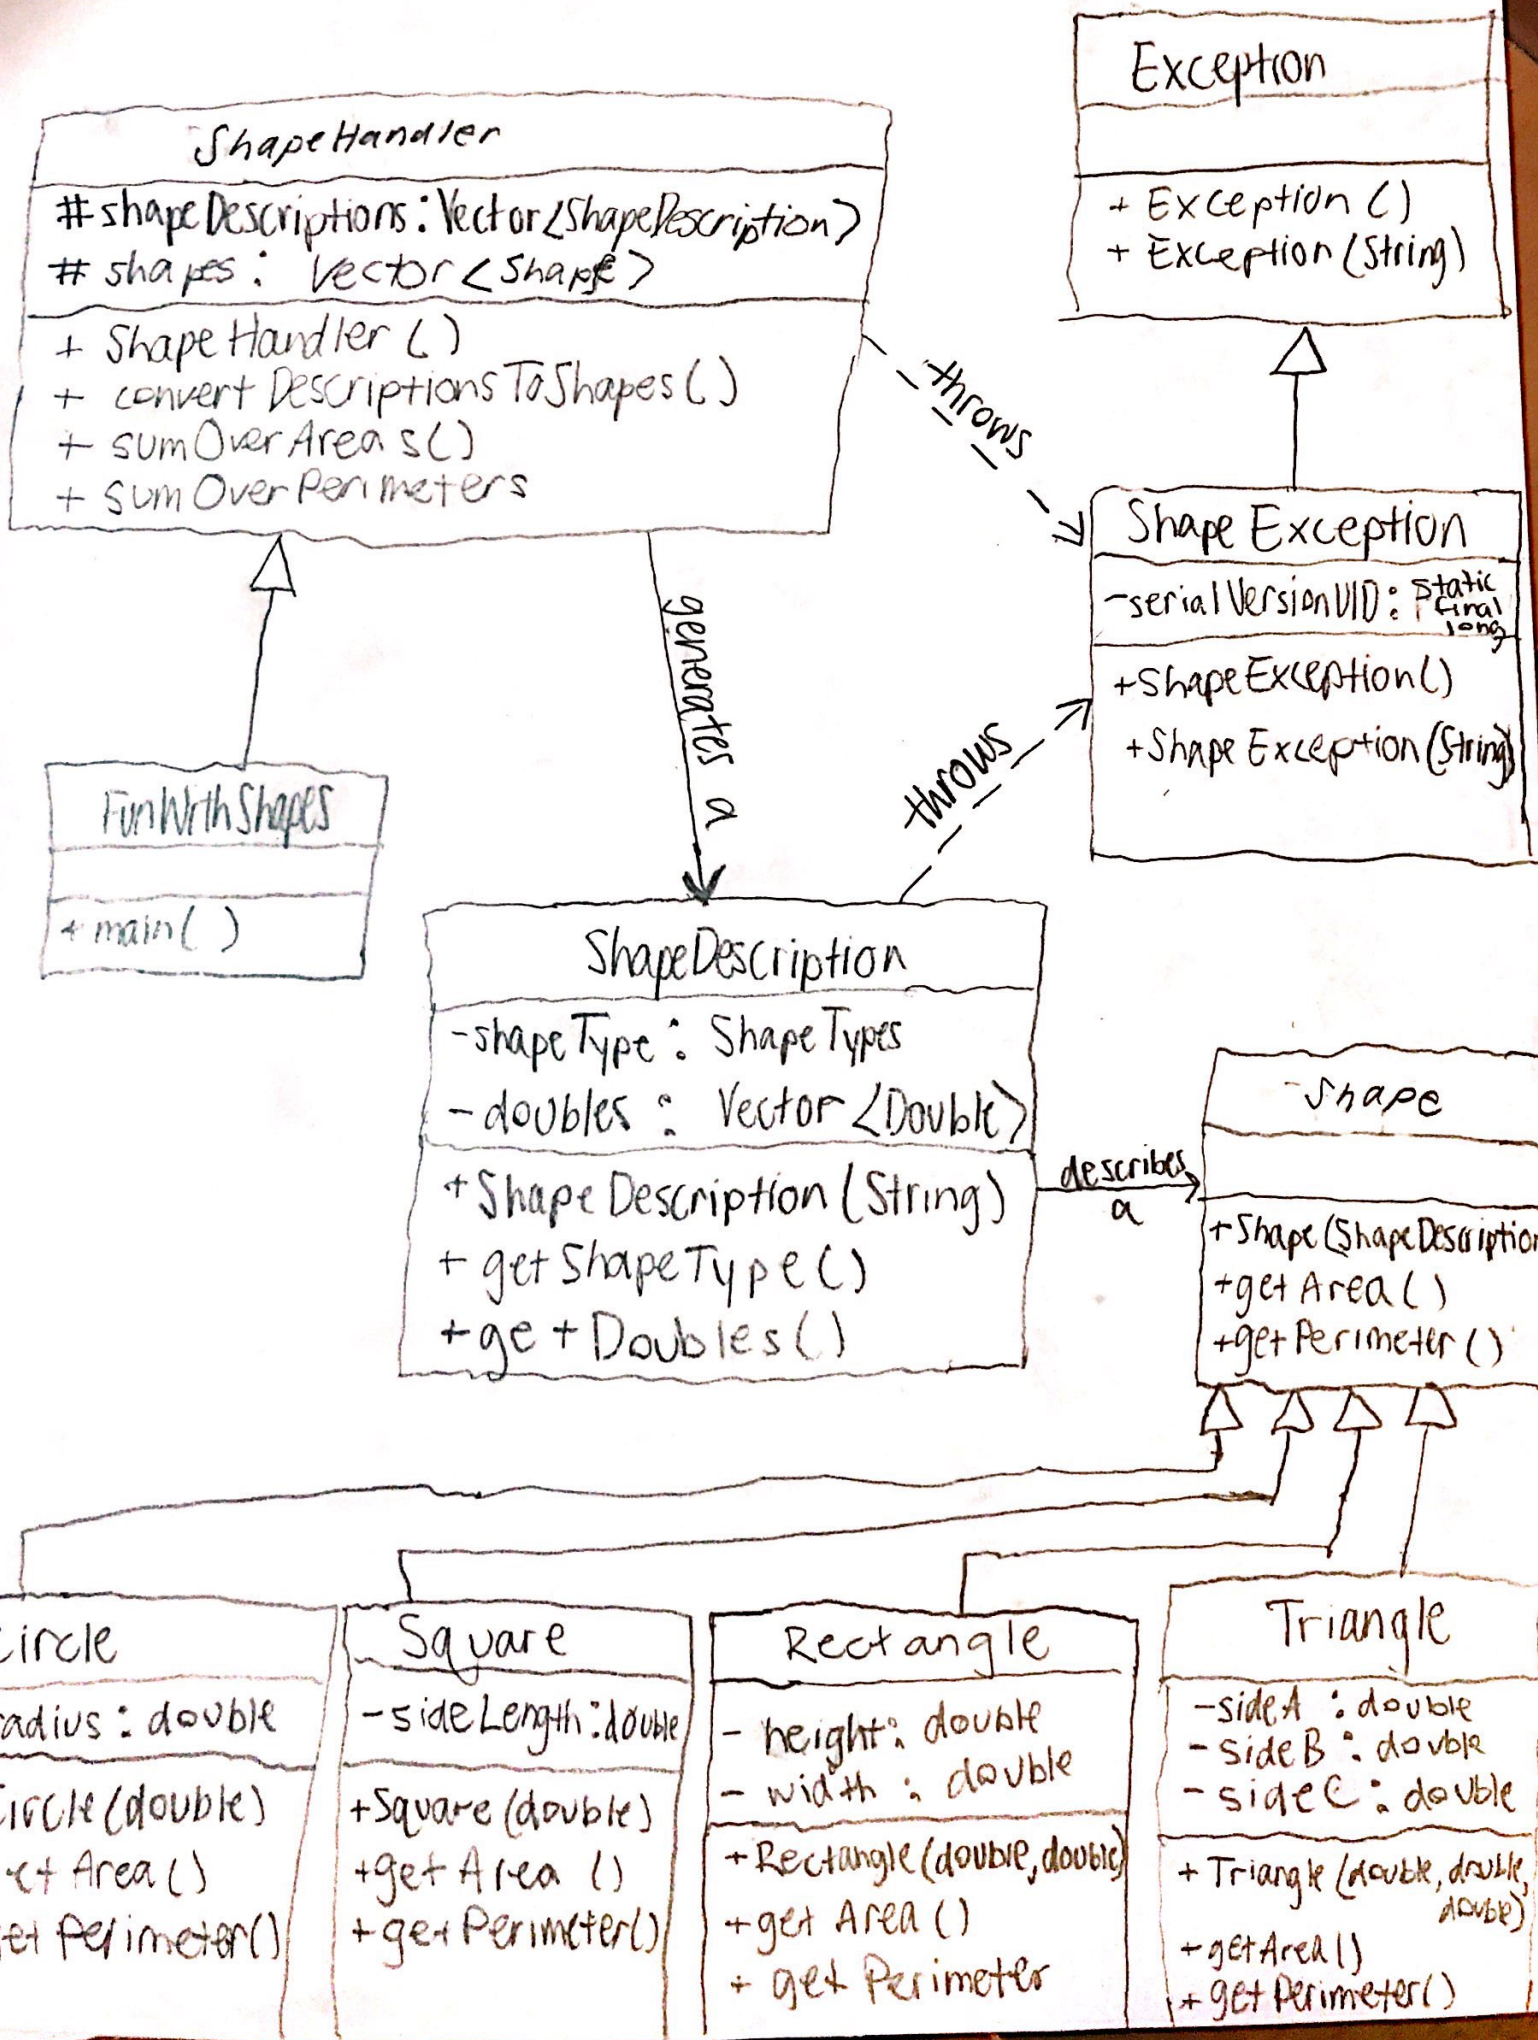 Exception
+ Exception()
+ Exception(String)
ShapeHandler
# shapeDescriptions: Vector<ShapeDescription>
# shapes: Vector<Shape>
+ ShapeHandler()
+ convertDescriptionsToShapes()
+ sumOverAreas()
+ sumOverPerimeters
throws
ShapeException
- serialVersionUID: static
final
long
+ ShapeException()
+ ShapeException(String)
generates a
throws
FunWithShapes
+ main()
ShapeDescription
- shapeType: ShapeTypes
- doubles: Vector<Double>
+ ShapeDescription(String)
+ getShapeType()
+ getDoubles()
describes
a
Shape
+ Shape(ShapeDescription
+ getArea()
+ getPerimeter()
Circle
adius: double
Circle(double)
etArea()
etPerimeter()
Square
- sideLength: double
+ Square(double)
+ getArea()
+ getPerimeter()
Rectangle
- height: double
- width: double
+ Rectangle(double, double)
+ getArea()
+ getPerimeter
Triangle
- sideA: double
- sideB: double
- sideC: double
+ Triangle(double, double,
double)
+ getArea()
+ getPerimeter()